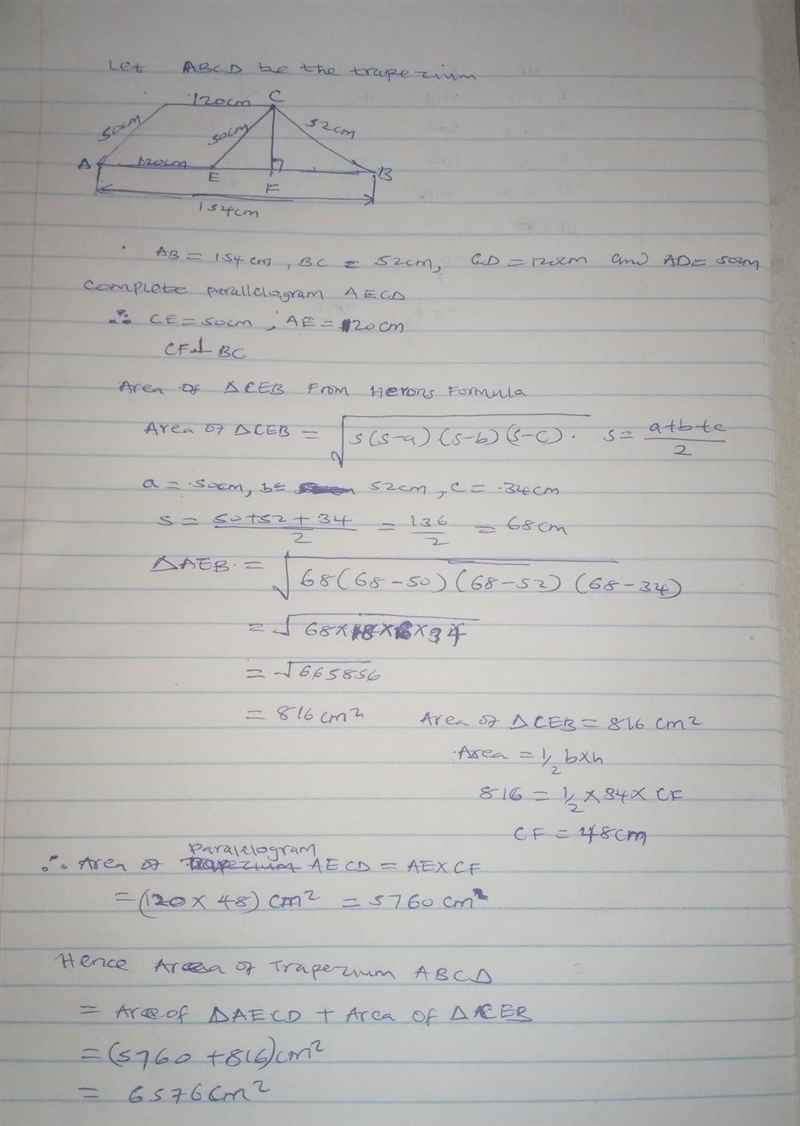 Let ABCD be the trapezium
120cm C
50cm 50cm 52cm
A 120cm E F B
154cm
AB = 154cm, BC = 52cm, CD = 120cm and AD = 50cm
Complete parallelogram AECD
∴ CE = 50cm, AE = 120cm
CF ⊥ BC
Area of △CEB From Herons Formula
Area of △CEB = √s(s-a)(s-b)(s-c). s = a+b+c/2
a = 50cm, b = 52cm, c = 34cm
s = 50+52+34/2 = 136/2 = 68cm
△AEB = √68(68-50)(68-52)(68-34)
= √68×18×16×34
= √665856
= 816cm² Area of △CEB = 816 cm²
Area = 1/2 b×h
816 = 1/2 × 34 × CF
CF = 48cm
∴ Area of Paralelogram AECD = AE×CF
= (120 × 48) cm² = 5760 cm²
Hence Area of Trapezium ABCD
= Area of △AECD + Area of △CEB
= (5760 + 816)cm²
= 6576cm²